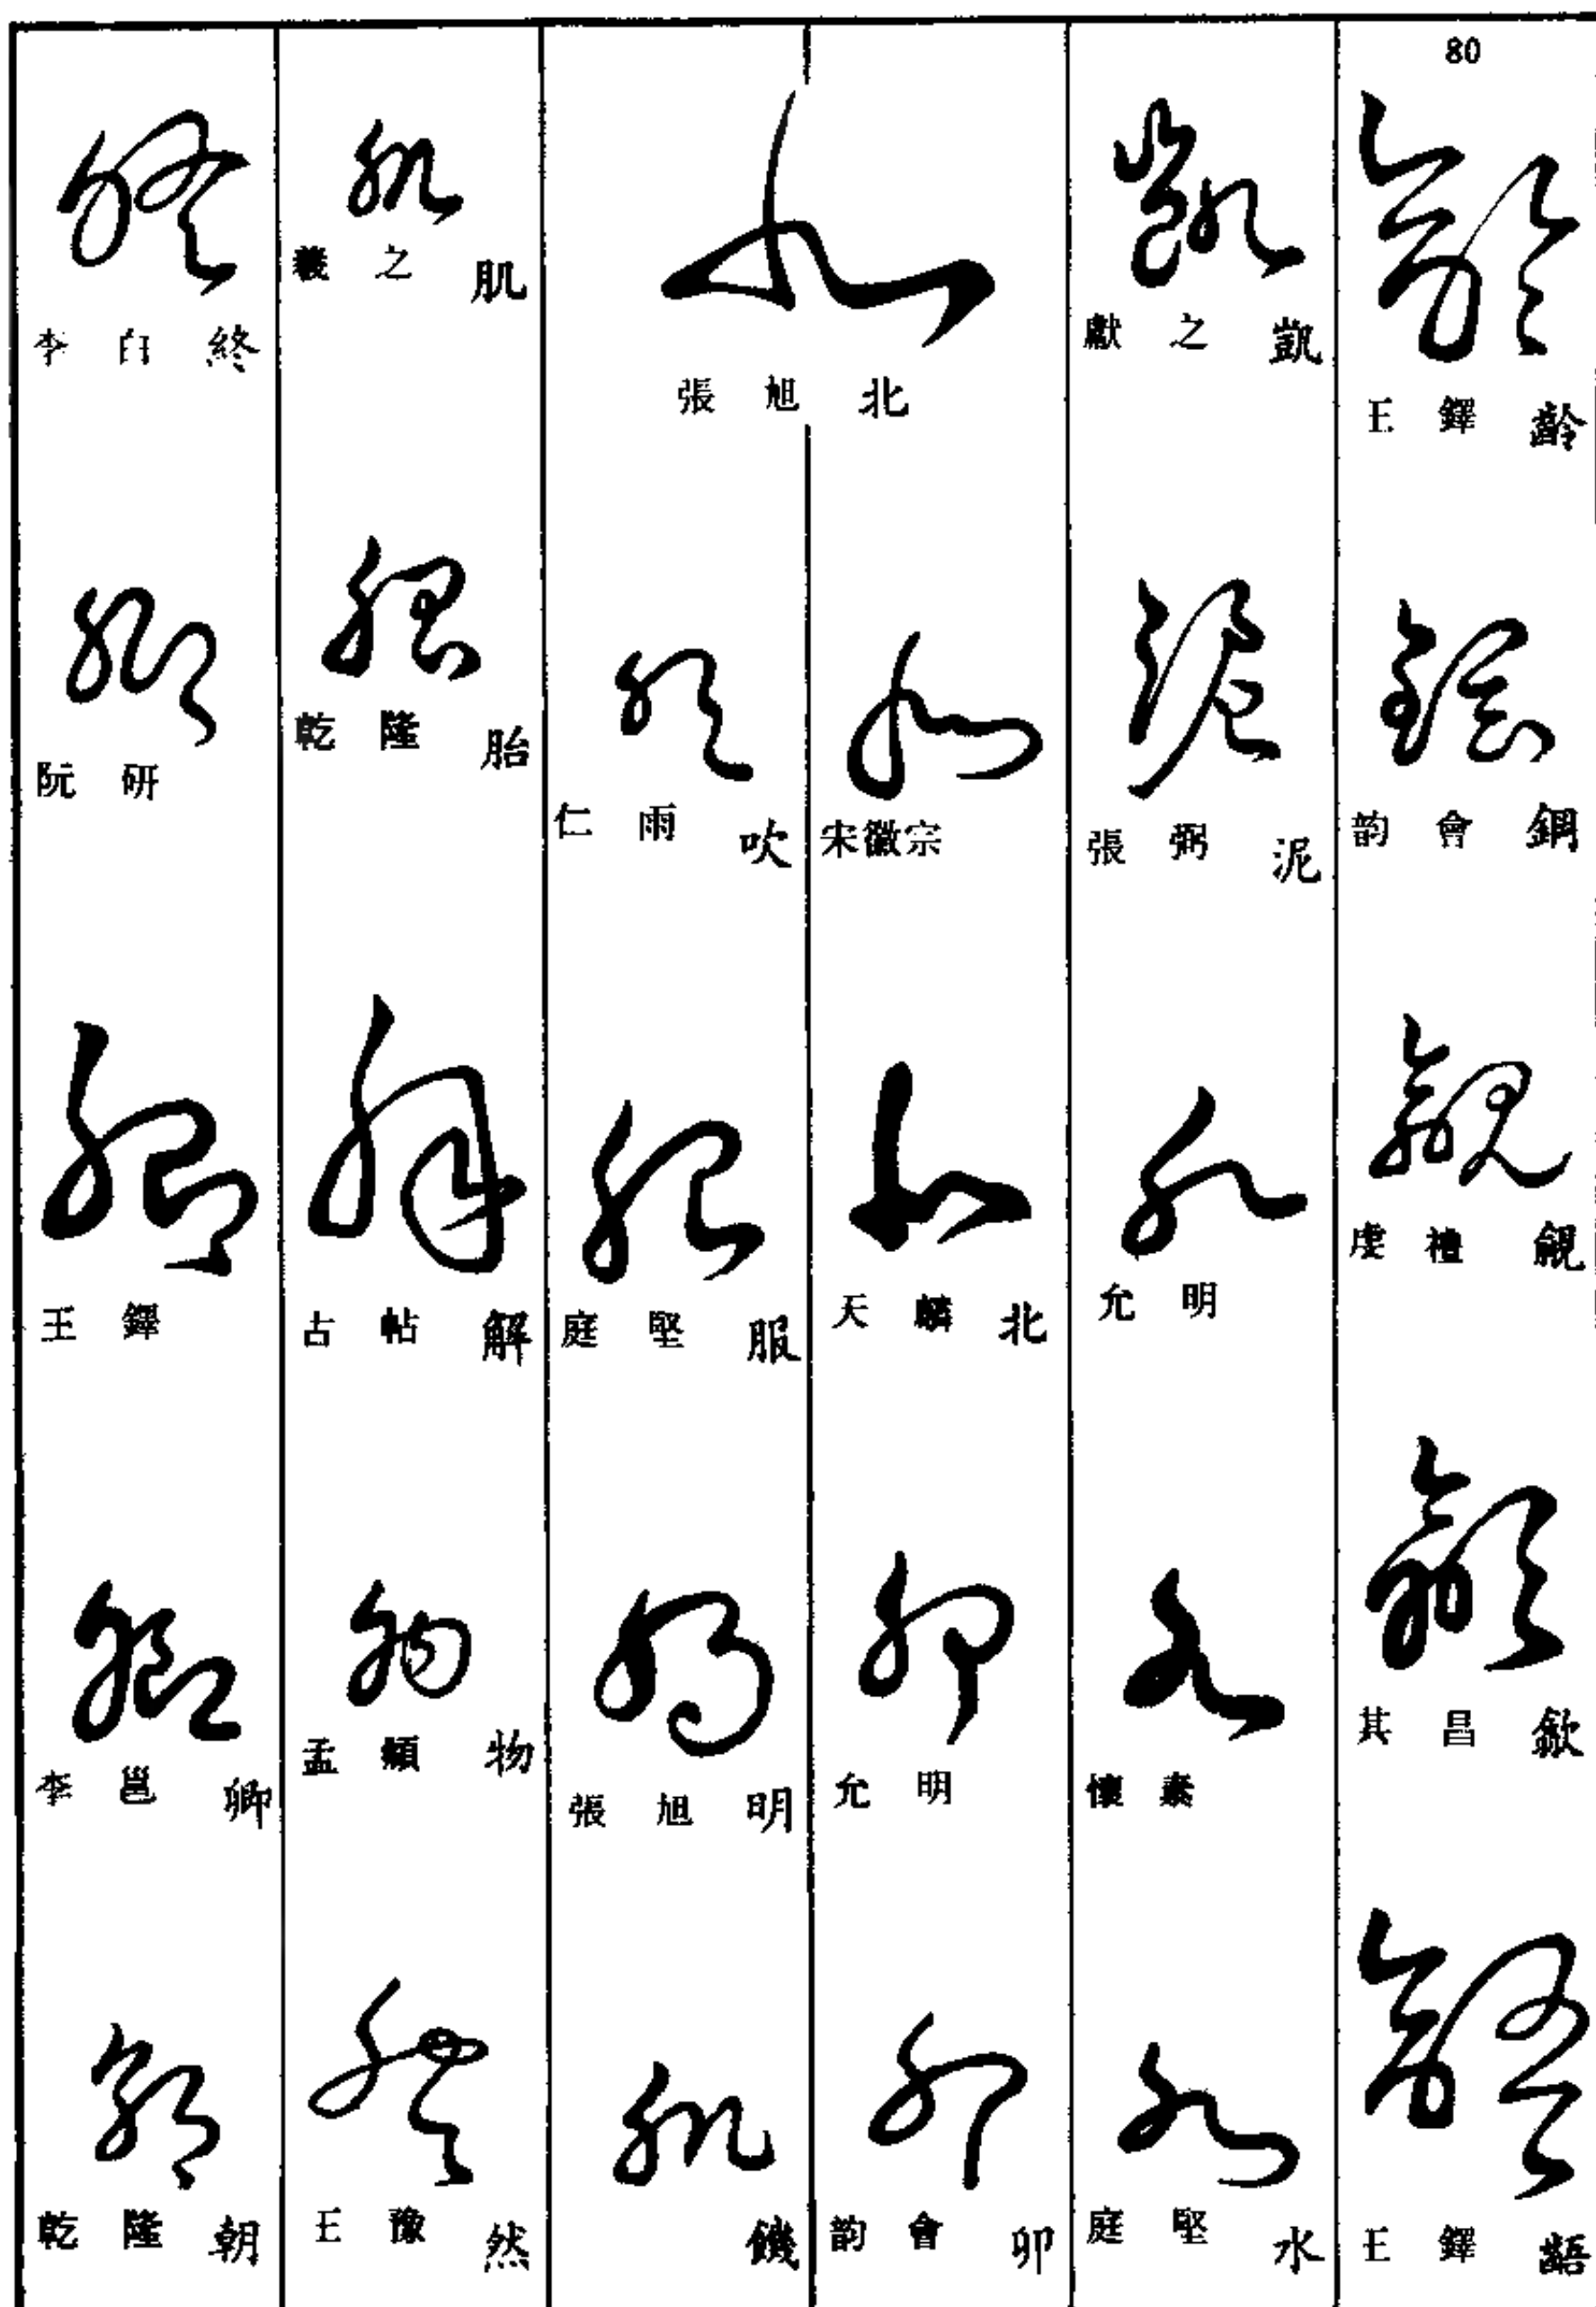 80
王鐸 齡
韵會 鋼
虔禮
其昌
王鐸 齬
獻之 凱
張弼 泥
允明
懷素
庭堅 水
張旭 北
宋徽宗
天麟 北
允明
韵會 卯
仁雨 吹
庭堅 服
張旭 明
饑
羲之 肌
乾隆 胎
古帖 解
孟頫 物
王豫 然
李白 終
阮研
王鐸
李邕 卿
乾隆 朝